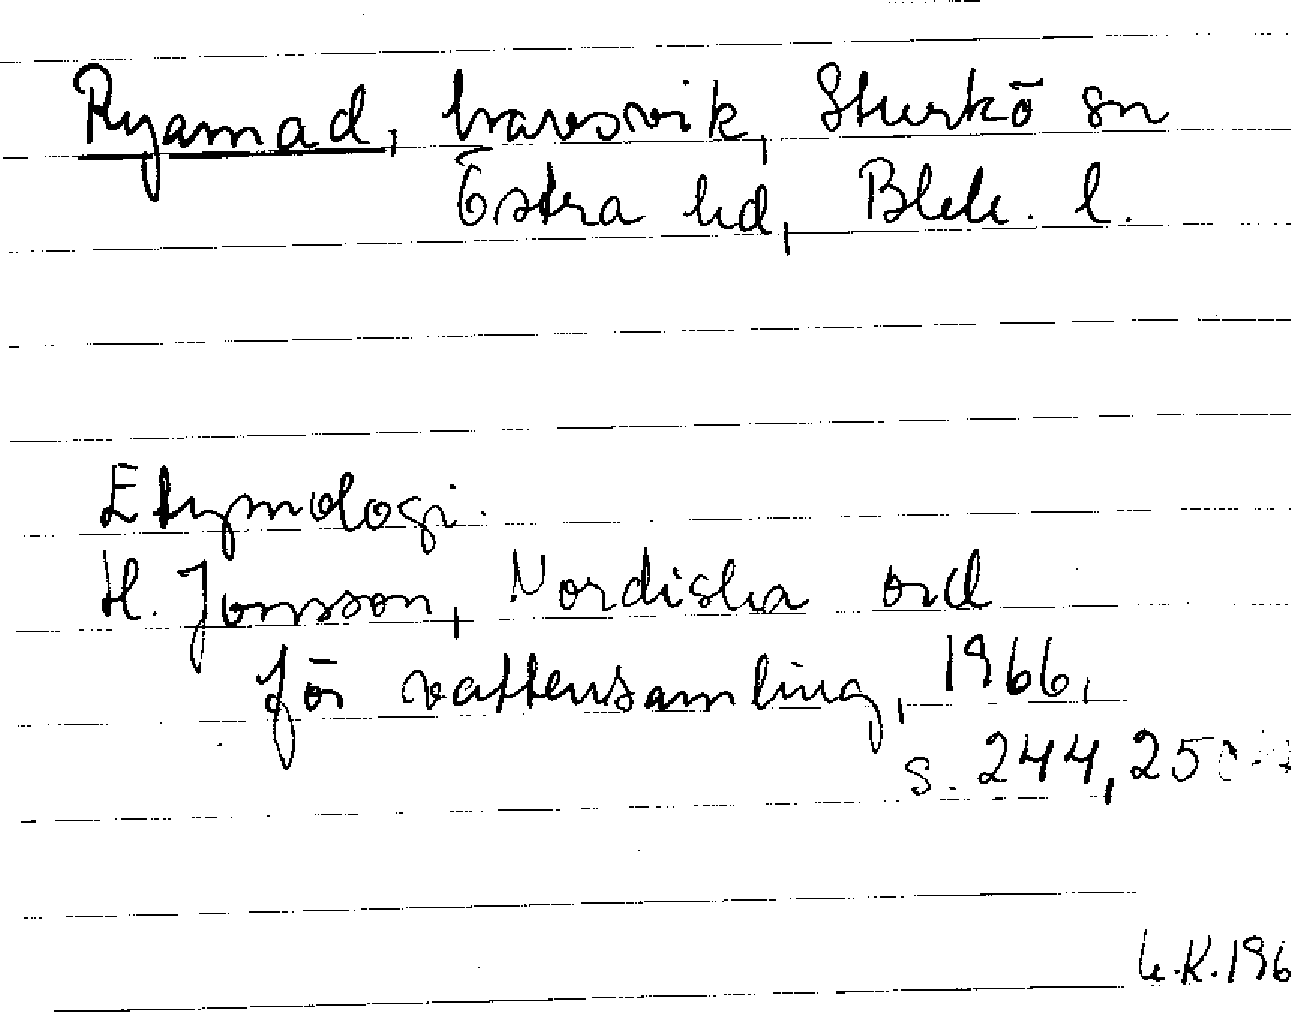 Ryamad, havsvik, Sturkö sn
Östra hd, Blek. l.
Etymologi.
H. Jonsson, Nordiska ord
för vattensamling, 1966,
s. 244, 25
K. 196